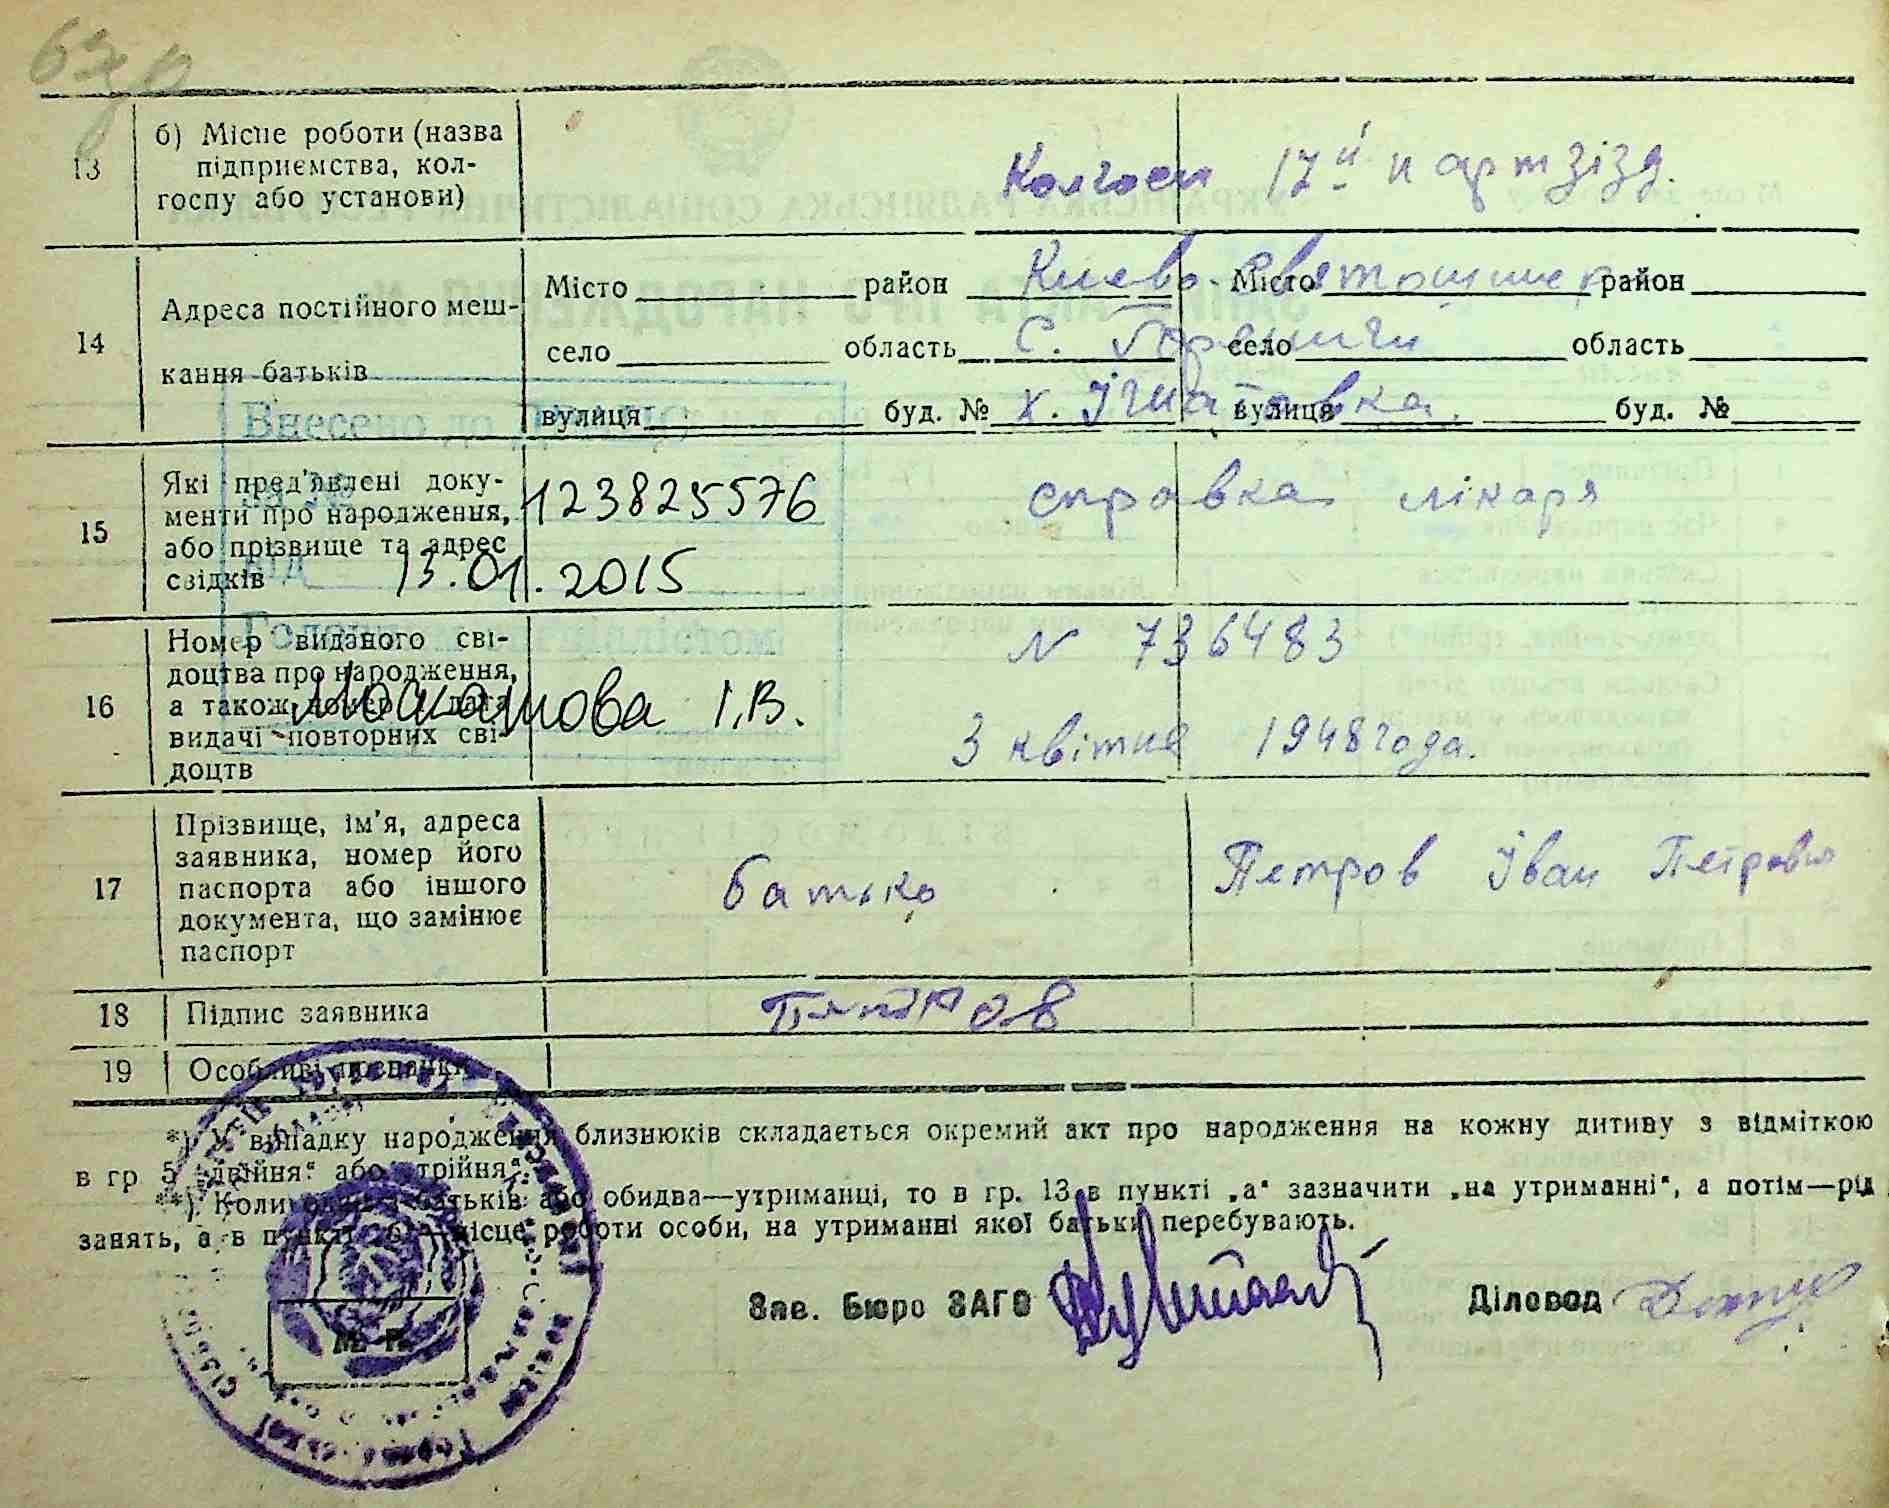 13
б) Місце роботи (назва
підприємства, кол-
госпу або установи)
Колгосп 17й партзізд.
14
Адреса постійного меш-
кання батьків
Місто район Києво-Святошинс Місто район
село область с. Горяничи село область
вулиця буд. № х. Ігнатовка. вулиця буд. №
Внесено до ДРАЦС
15
Які пред'явлені доку-
менти про народження,
або прізвище та адрес
свідків
123825576
справка лікаря
від 13.01.2015
16
Номер виданого сві-
доцтва про народження,
а також номер і дата
видачі повторних сві-
доцтв
N 736483
І.В.
3 квітня 1948 года.
17
Прізвище, ім'я, адреса
заявника, номер його
паспорта або іншого
документа, що замінює
паспорт
батько
Петров Іван Петрович
18
Підпис заявника
Петров
19
Особливі позначки
*) У випадку народження близнюків складається окремий акт про народження на кожну дитину з відміткою
в гр 5 „двійня“ або „трійня“.
**) Коли один з батьків або обидва—утриманці, то в гр. 13 в пункті „а“ зазначити „на утриманні“, а потім—рід
занять, а в пункті „б“ місце роботи особи, на утриманні якої батьки перебувають.
Зав. Бюро ЗАГС
Діловод
М. П.